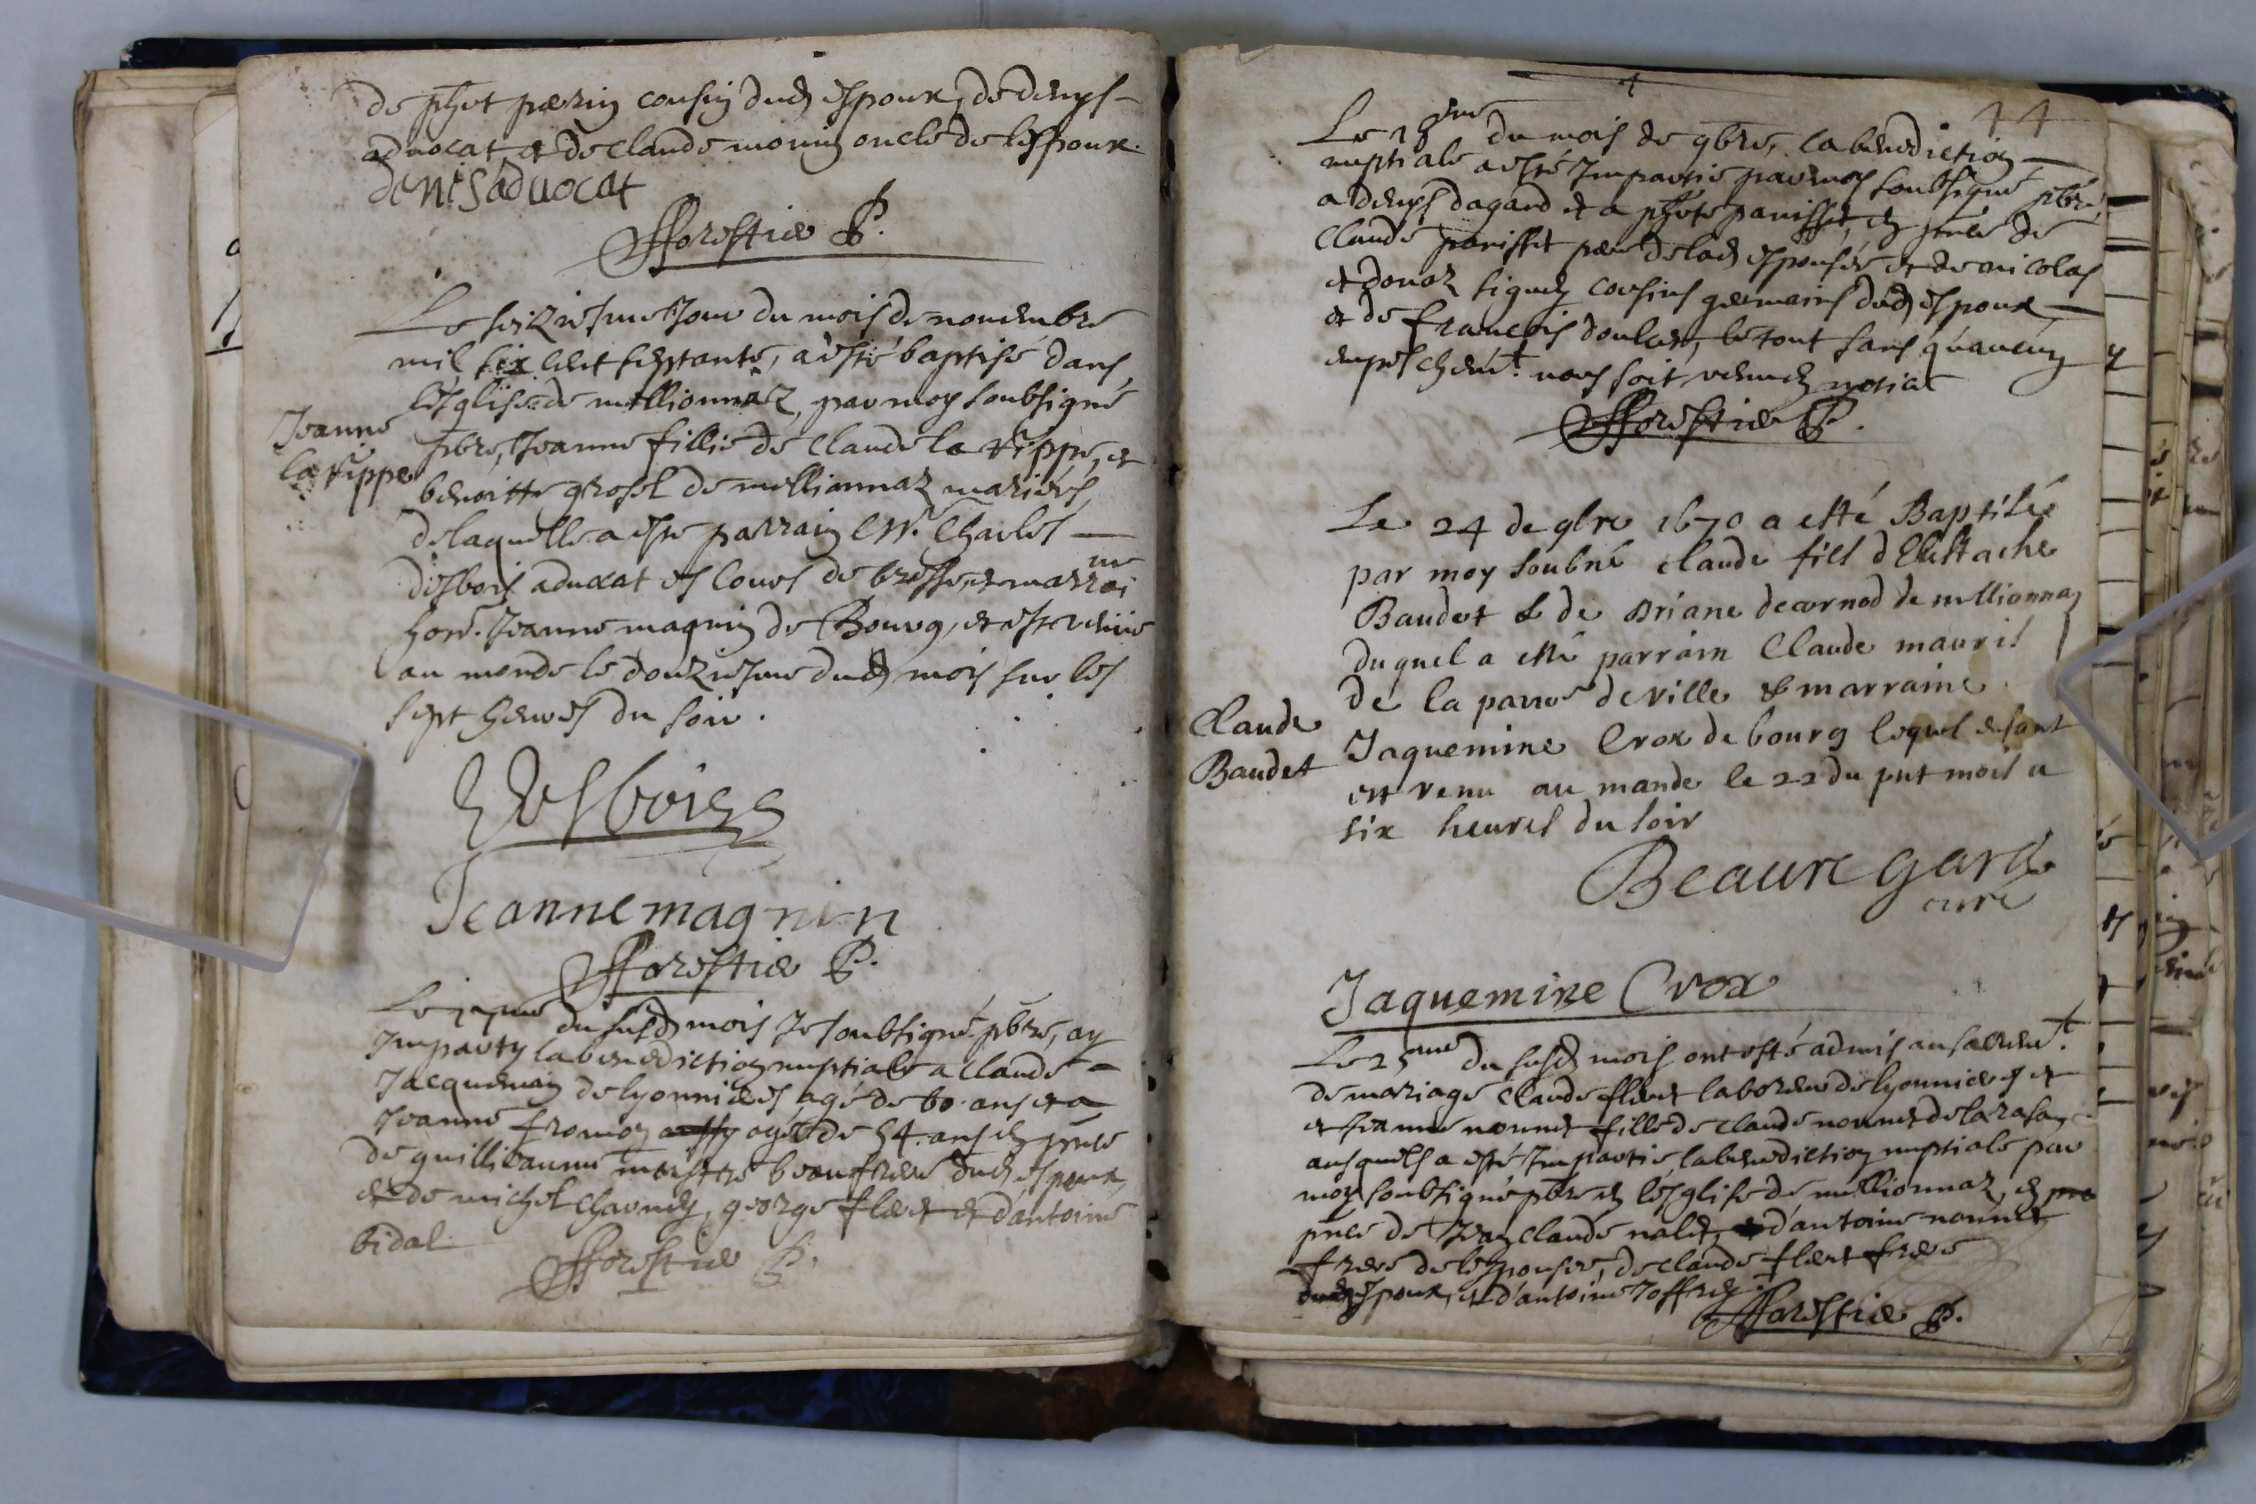 de phet perrin cousin dud espoux, de denys
advocat et de claude monin oncle de lespoux.
denis advocat
fforestier P.
Le seiziesme Jour du mois de novembre
mil six cent septante, a esté baptisé dans
lésglise de mellionnaz, par moy soubsigné
pbre, Jeanne fillie de Claude la rippe, et
Jeanne
la rippe
benoitte grosel de mellionnaz mariés,
de laquelle a este parrain Mr. Charles
desbois advocat es Cours de bresse, et marrai
ne
hone. Jeanne magnin de Bourg, et est venüe
au monde le douziesme dud mois sur les
sept heures du soir.
Desbois
Jeanne magnin
fforestier P.
Le 17me du susd mois Je soubsigné pbre, ay
Imparty la benediction nuptiale a claude
Jacquemin de lyonnieres agé de 60 ans et a
Jeanne fromon agée de 54. ans en pnce
de guillieaume maistre beaufrere dud espoux,
et de michel charney, george fleret et d'antoine
bidal.
fforestier P.
44
Le 18me du mois de 9bre, la benediction
nuptiale a esté Impartie par moy soubsigné pbre,
a denys dagard et a phete parisset, en pnce de
Claude parisset pere de lad espousée et de nicolas
et donaz signey cousins germains dud espoux
et de francois doulcet, le tout sans qu'aucun
empeschemt. nous soit venu en notice
fforestier P.
Le 24 de 9bre 1670 a esté Baptisé
par moy soubné claude fils d'Eustache
Baudet & de Oriane decornod de mellionnaz
duquel a esté parrain Claude mauris
de la parre de ville & marraine
Claude
Baudet
Jaquemine Crox de bourg lequel enfant
est venu au monde le 22 du pnt mois a
six heures du soir
Beauregard
curé
Jaquemine Crox
Le 25me du susd mois ont esté admis au sacremt.
de mariage Claude fleret laboreur de lyonnieres et
et Jeanne nonnet fille de claude nonnet de la rasa
ausquels a esté Impartie la benediction nuptiale par
moy soubsigné pbre en lésglise de mellionnaz, en
pnce de Jean claude nalet, d'antoine nonnet
frere de lespousée, de claude fleret frere
dud espoux, et d'antoine Joffrey.
fforestier P.